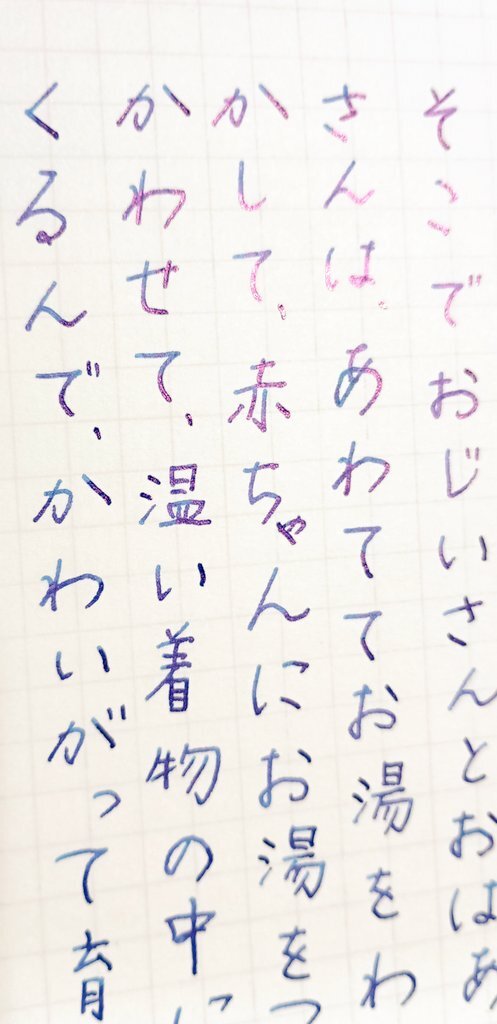 そこでおじいさんとおはあ
さんは、あわててお湯をわ
かして、赤ちゃんにお湯をつ
かわせて、温い着物の中に
くるんで、かわいがって育